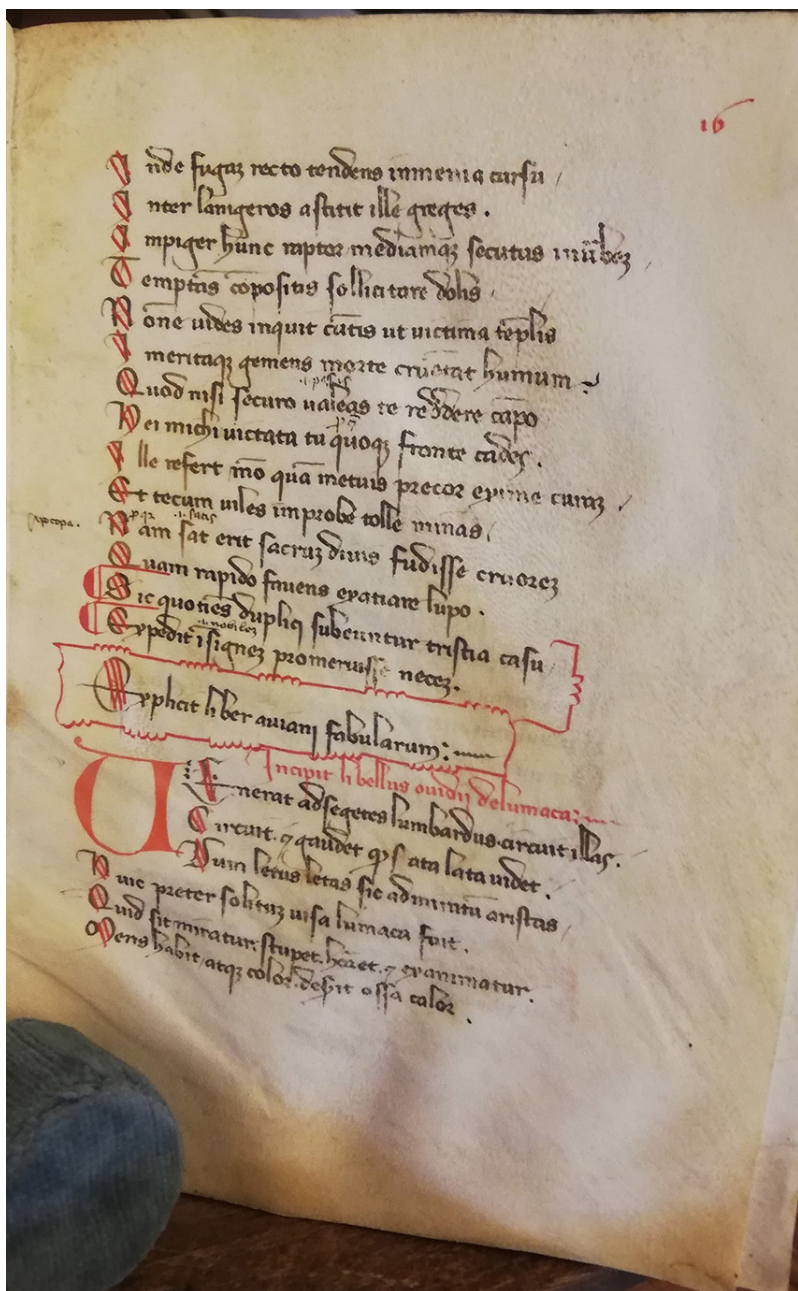 16
Inde fugaz recto tendens in menia cursu
Inter lanigeros astitit ille greges.
Impiger hūnc raptor mediamqꝫ secutus
Temptās cōpositis sollicitare dolis
Nōne uides inquit cūtis ut uictima tēplis
Immeritaqꝫ gemens morte cruētat humum
Quod nisi securo ualeas te reddere cāpo
Hei michi uictata tu quoqꝫ fronte cades.
Ille refert mō quā metuis precor exime curaꝫ
Et tecum uiles improbe tolle minas
Nam sat erit sacruꝫ diuis fudisse cruoreꝫ
Quam rapido fauens exatiare lupo.
Sic quotiēs dupliqꝫ subeuntur tristia casu
Expedit īsigneꝫ promeruisse neceꝫ.
Explicit liber auiani fabularum:
Incipit libellus ouidii de lumaca:
Uenerat ad segetes lumbardus. circuit illas.
Circuit. ⁊ gaudet qꝫ sata lata uidet.
Dum letus letas sic admirātū aristas
Huic preter solituꝫ uisa lumaca fuit.
Quid sit miratur. stupet. heret. ⁊ exanimatur.
Mens habit atqꝫ color. desīt ossa calor.